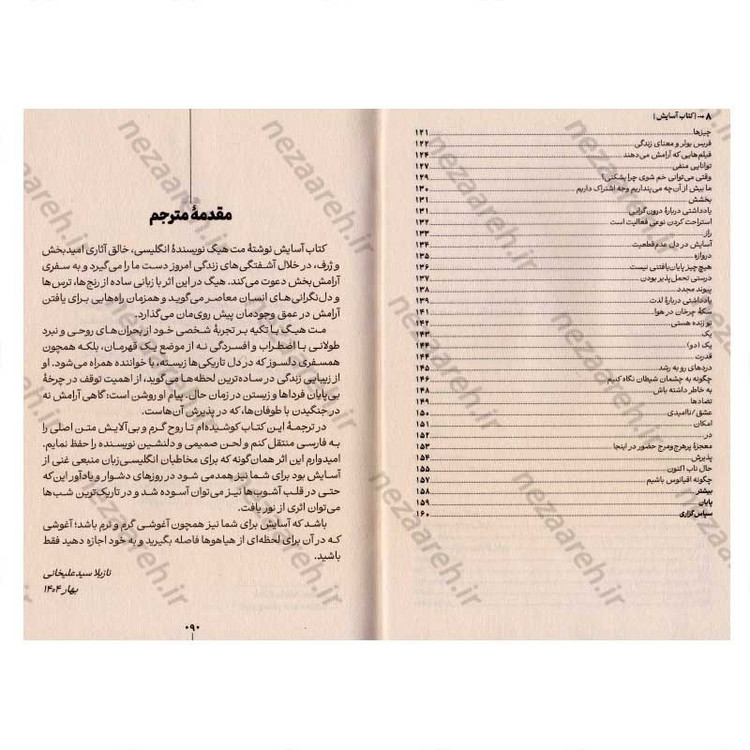 ۸ --- [کتاب آسایش]
چیزها ۱۲۱
فریس بولر و معنای زندگی ۱۲۲
فیلم‌هایی که آرامش می‌دهند ۱۲۴
توانایی منفی ۱۲۷
وقتی می‌توانی خم شوی چرا بشکنی؟ ۱۲۹
ما بیش از آن‌چه می‌پنداریم وجه اشتراک داریم ۱۳۰
بخشش ۱۳۱
یادداشتی درباره درون‌گرایی ۱۳۱
استراحت کردن نوعی فعالیت است ۱۳۲
راز ۱۳۳
آسایش در دل عدم‌قطعیت ۱۳۴
دروازه ۱۳۵
هیچ‌چیز پایان‌یافتنی نیست ۱۳۶
درستی تحمل‌پذیر بودن ۱۳۷
پیوند مجدد ۱۳۸
یادداشتی درباره لذت ۱۳۹
سکه چرخان در هوا ۱۴۱
تو زنده هستی ۱۴۲
یک ۱۴۳
یک (دو) ۱۴۴
قدرت ۱۴۴
دردهای رو به رشد ۱۴۵
چگونه به چشمان شیطان نگاه کنیم ۱۴۶
به خاطر داشته باش ۱۴۸
تضادها ۱۴۹
عشق/ناامیدی ۱۵۰
امکان ۱۵۱
در ۱۵۲
معجزه پرهرج‌ومرج حضور در اینجا ۱۵۳
پذیرش ۱۵۴
حال ناب اکنون ۱۵۵
چگونه اقیانوس باشیم ۱۵۷
بیشتر ۱۵۸
پایان ۱۵۹
سپاس‌گزاری ۱۶۰
مقدمهٔ مترجم
کتاب آسایش نوشتهٔ مت هیگ نویسندهٔ انگلیسی، خالق آثاری امیدبخش
و ژرف، در خلال آشفتگی‌های زندگی امروز دست ما را می‌گیرد و به سفری
آرامش‌بخش دعوت می‌کند. هیگ در این اثر با بیانی ساده از رنج‌ها، ترس‌ها
و دل‌نگرانی‌های انسان معاصر می‌گوید و همزمان راه‌هایی برای یافتن
آرامش در عمق وجودمان پیش روی‌مان می‌گذارد.
مت هیگ با تکیه بر تجربهٔ شخصی خود از بحران‌های روحی و نبرد
طولانی با اضطراب و افسردگی نه از موضع یک قهرمان، بلکه همچون
همسفری دلسوز که در دل تاریکی‌ها زیسته، با خواننده همراه می‌شود. او
از زیبایی زندگی در ساده‌ترین لحظه‌ها می‌گوید، از اهمیت توقف در چرخهٔ
بی‌پایان فرداها و زیستن در زمان حال. پیام او روشن است: گاهی آرامش نه
در جنگیدن با طوفان‌ها، که در پذیرش آن‌هاست.
در ترجمهٔ این کتاب کوشیده‌ام تا روح گرم و بی‌آلایش متن اصلی را
به فارسی منتقل کنم و لحن صمیمی و دلنشین نویسنده را حفظ نمایم.
امیدوارم این اثر همان‌گونه که برای مخاطبان انگلیسی‌زبان منبعی غنی از
آسایش بود برای شما نیز همدمی شود در روزهای دشوار و یادآور این‌که
حتی در قلب آشوب‌ها نیز می‌توان آسوده شد و در تاریک‌ترین شب‌ها
می‌توان اثری از نور یافت.
باشد که آسایش برای شما نیز همچون آغوشی گرم و نرم باشد؛ آغوشی
که در آن برای لحظه‌ای از هیاهوها فاصله بگیرید و به خود اجازه دهید فقط
باشید.
نازیلا سیدعلیخانی
بهار ۱۴۰۴
۰۹۰
nezaareh.ir